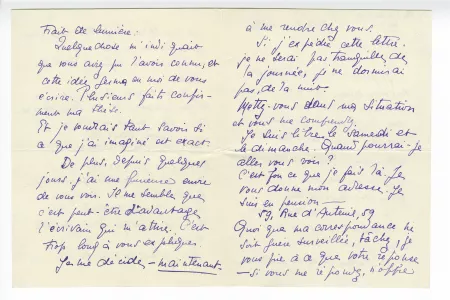 Trait de lumière.
Quelque chose m'indiquait
que vous avez pu l'avoir connu, et
cette idée germa en moi de vous
écrire. Plusieurs faits confir-
ment ma thèse.
Et je voudrais tant savoir si
ce que j'ai imaginé est exact.
De plus, depuis quelques
jours, j'ai une furieuse envie
de vous voir. Il me semble que
c'est peut-être d'avantage
l'écrivain qui m'attire. C'est
trop long à vous expliquer.
Je me décide, - maintenant.
à me rendre chez vous.
Si j'expédie cette lettre,
je ne serai pas tranquille de
la journée, je ne dormirai
pas de la nuit.
Mettez-vous dans ma situation
et vous me comprendrez.
Je suis libre le samedi et
le dimanche. Quand pourrai-je
aller vous voir ?
C'est fou ce que je fais là. Je
vous donne mon adresse. Je
suis en pension —
59, Rue d'Auteuil, 59
Quoi que ma correspondance ne
soit guère surveillée, tâchez, je
vous prie à ce que votre réponse
- si vous me répondez, n'offre